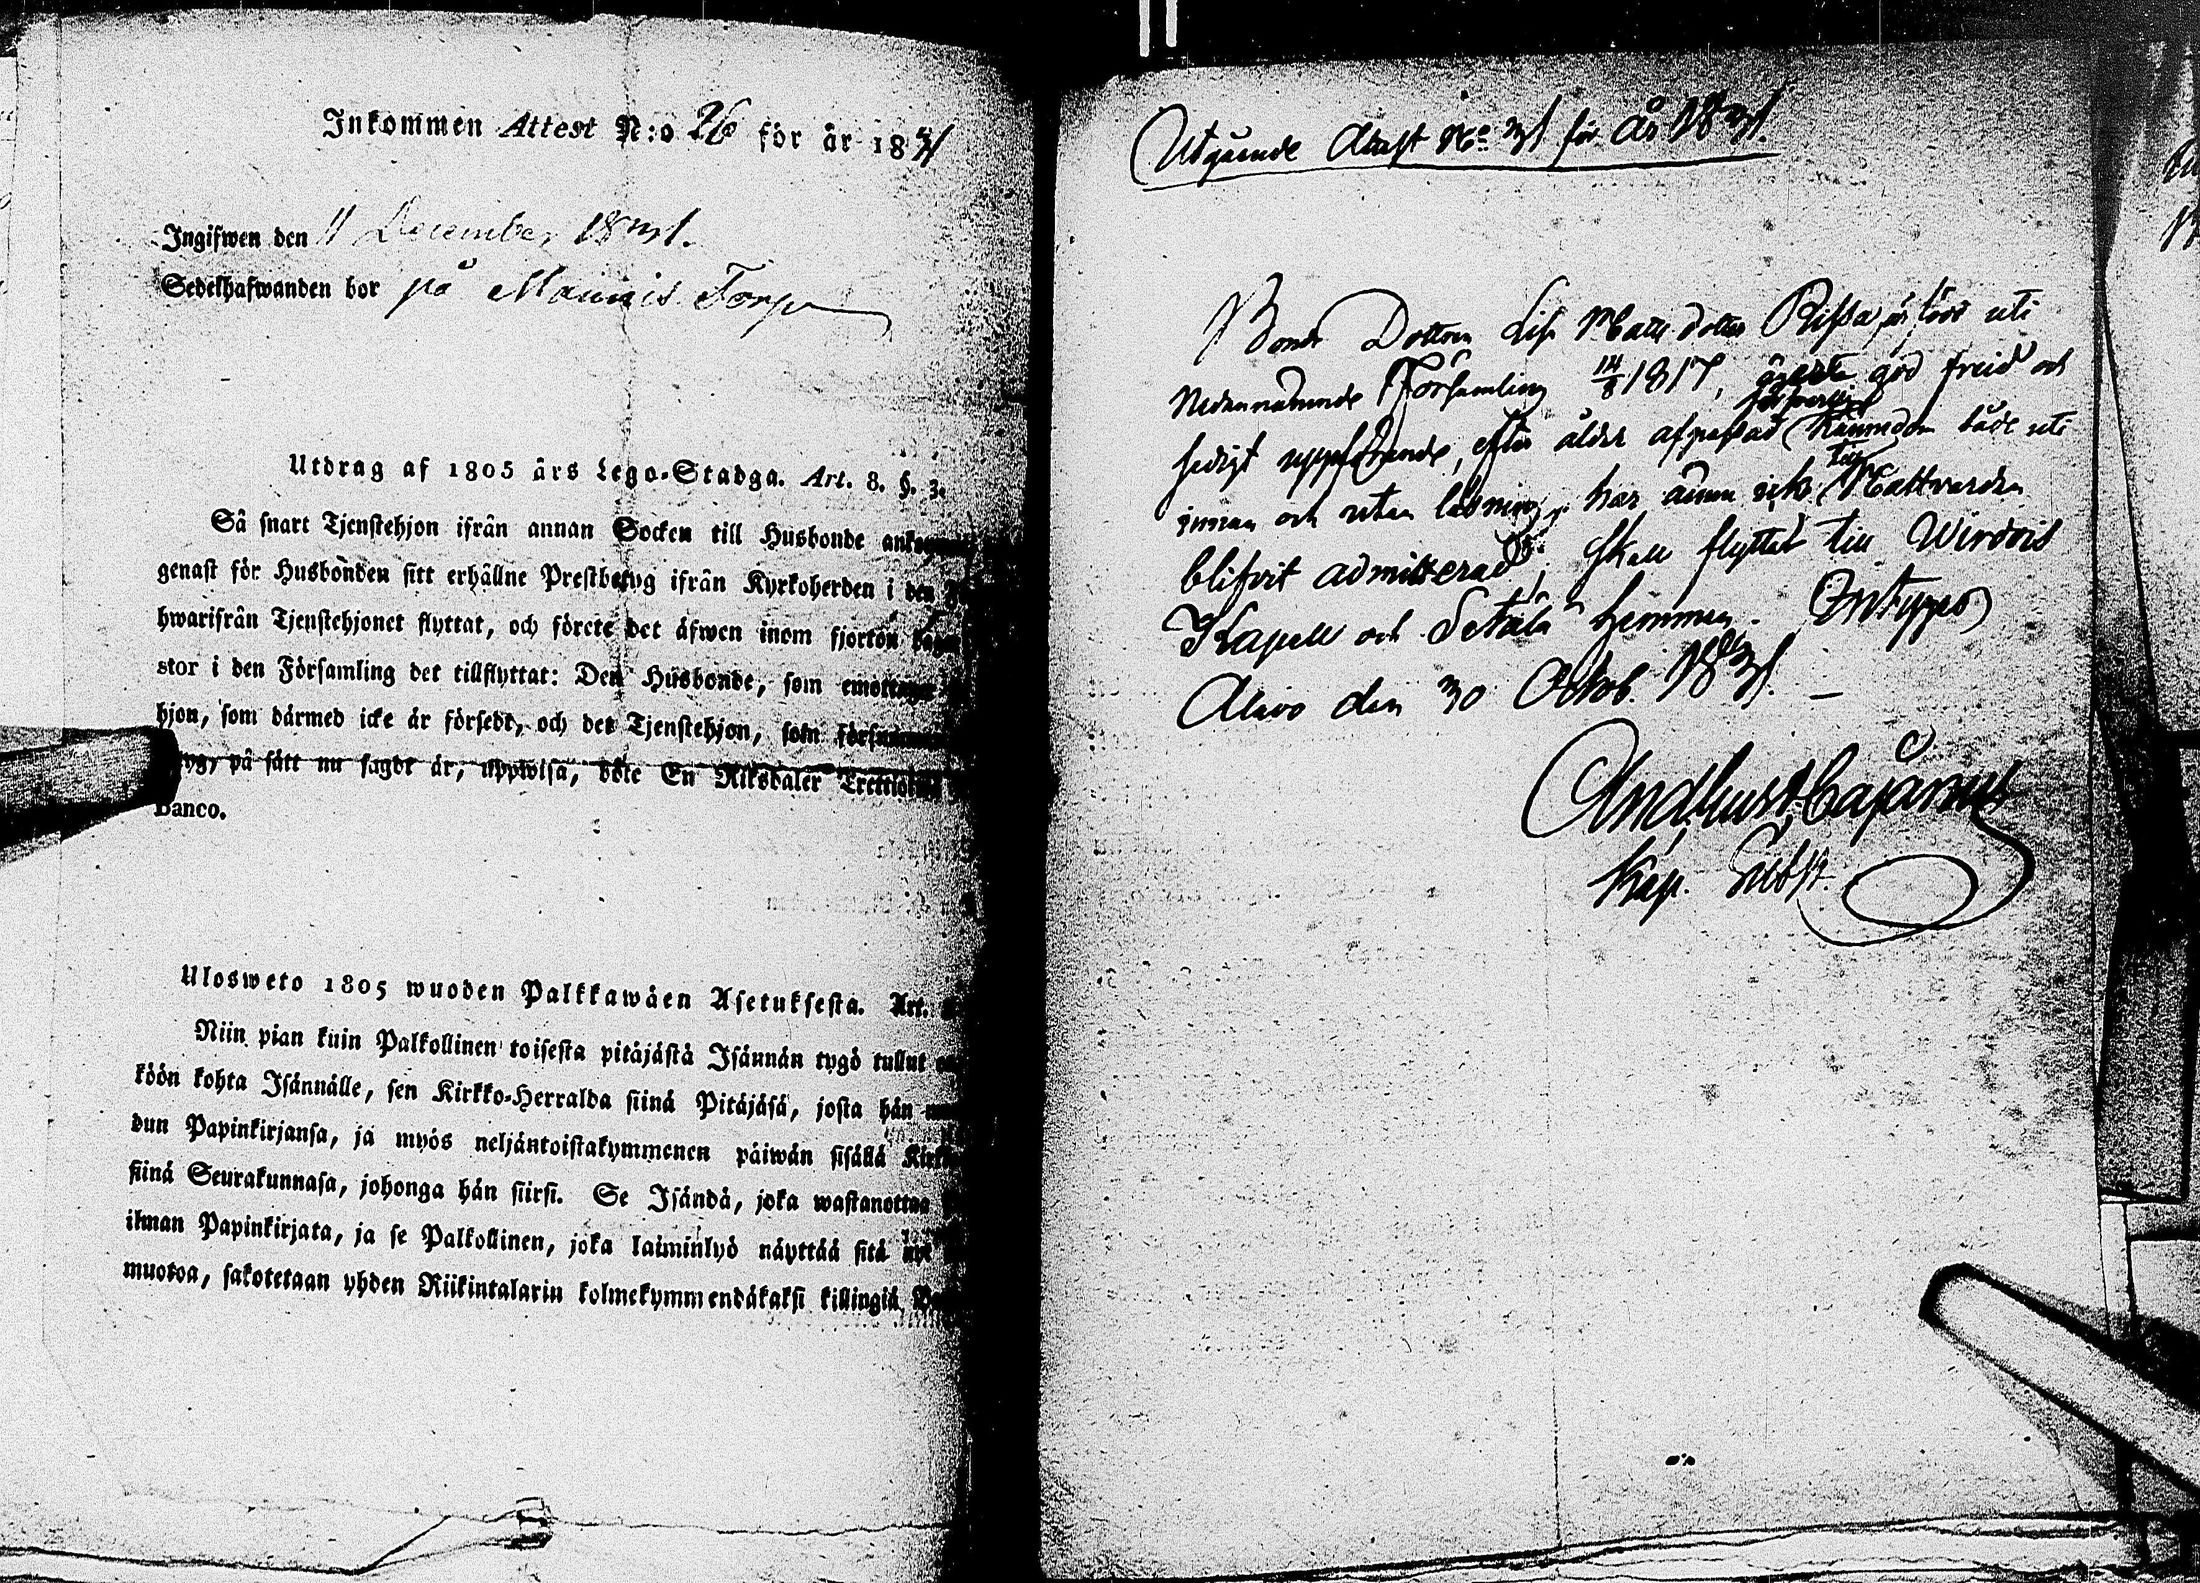 Inkommen Attest N:o 26 för år 1831
Ingifwen den 11 December 1831.
Sedelhafwanden bor på Maunis Torp
Utdrag af 1805 års Lego-Stadga. Art. 8. §. 3.
Så snart Tjenstehjon ifrån annan Socken till Husbonde
genast för Husbonden sitt erhållne Prestbetyg ifrån Kyrkoherden i den
hwarifrån Tjenstehjonet flyttat, och förete det äfwen inom fjorton
stor i den Församling det tillflyttat: Den Husbonde, som emottager
hjon, som därmed icke är försedt, och det Tjenstehjon, som
på sätt nu sagdt är, uppwisa, böte En Riksdaler
Banco.
Ulosweto 1805 wuoden Palkkawäen Asetuksesta. Art.
Niin pian kuin Palkollinen toisesta pitäjästä Isännän tygö tullut
köön kohta Isännälle, sen Kirkko-Herralda siinä Pitäjäsä, josta hän
dun Papinkirjansa, ja myös neljäntoistakymmenen päiwän sisällä
siinä Seurakunnasa, johonga hän siirsi. Se Isändä, joka wastanottaa
ilman Papinkirjata, ja se Palkollinen, joka laiminlyö näyttää sitä
muotoa, sakotetaan yhden Riikintalarin kolmekymmendäkaksi killingiä
Utgående Attest No 31 för år 1831.
Bonde Dottren Lisa Matts dotter Rissa är född uti
Nedannämnde Församling 14/8 1817, god freid och
sedigt uppförande, efter ålder afpassad Kunnedom både uti
innan och utan läsning, har ännu icke till Nattvarden
blifvit admitterad, skall flyttat till Wirdois
Kapell och Setälä hemman.
Alavo den 30 Octob. 1831. —
And. Gust. Cajanus
Kap. Subst.